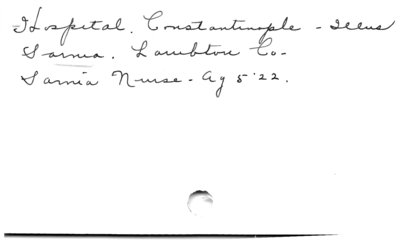 Hospital. Constantinople - Illus
Sarnia. Lambton Co-
Sarnia Nurse - Ag 5 '22.